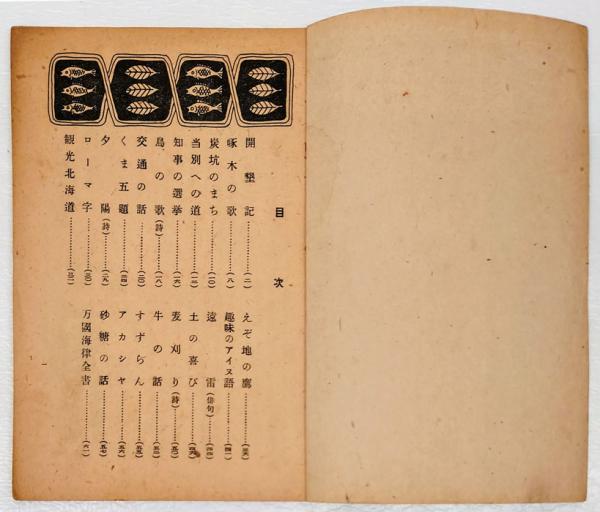 目次
開墾記…………(二)
啄木の歌…………(八)
炭坑のまち…………(一〇)
当別への道…………(一二)
知事の選挙…………(一六)
島の歌(詩)…………(一八)
交通の話…………(二〇)
くま五題…………(二四)
夕陽(詩)…………(二九)
ローマ字…………(三〇)
観光北海道…………(三二)
えぞ地の鷹…………
趣味のアイヌ語…………(四一)
遠雷(俳句)…………(四四)
土の喜び…………(四六)
麦刈り(詩)…………
牛の話…………
すずらん…………(五五)
アカシヤ…………(五六)
砂糖の話…………(五七)
万國海律全書…………(六一)